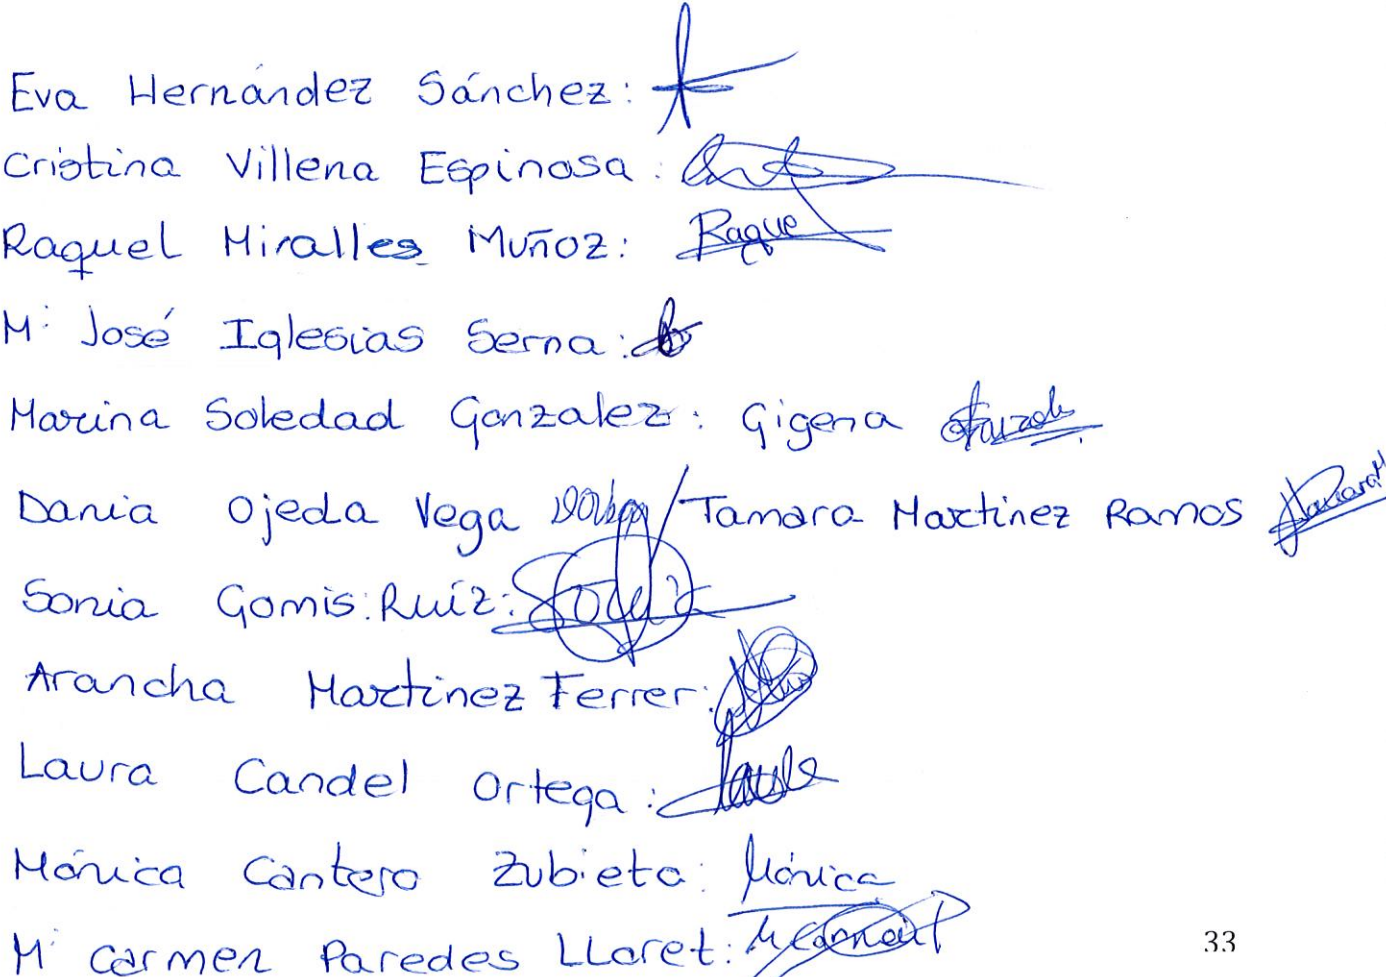 Eva Hernández Sánchez:
Cristina Villena Espinosa:
Raquel Miralles Muñoz: Raquel
Mª José Iglesias Serna:
Marina Soledad Gonzalez: Gigena
Dania Ojeda Vega / Tamara Martinez Ramos
Sonia Gomis: Ruíz: Sonia
Arancha Martinez Ferrer:
Laura Candel Ortega: Laura
Mónica Cantero Zubieta: Mónica
Mª Carmen Paredes LLoret:
33